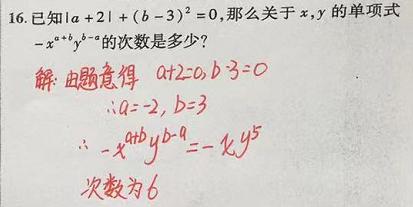 16.已知|a+2|+(b-3)²=0,那么关于x,y的单项式
-xᵃ⁺ᵇyᵇ⁻ᵃ的次数是多少?
解:由题意得 a+2=0,b-3=0
∴a=-2,b=3
∴ -xᵃ⁺ᵇyᵇ⁻ᵃ=-xy⁵
次数为6